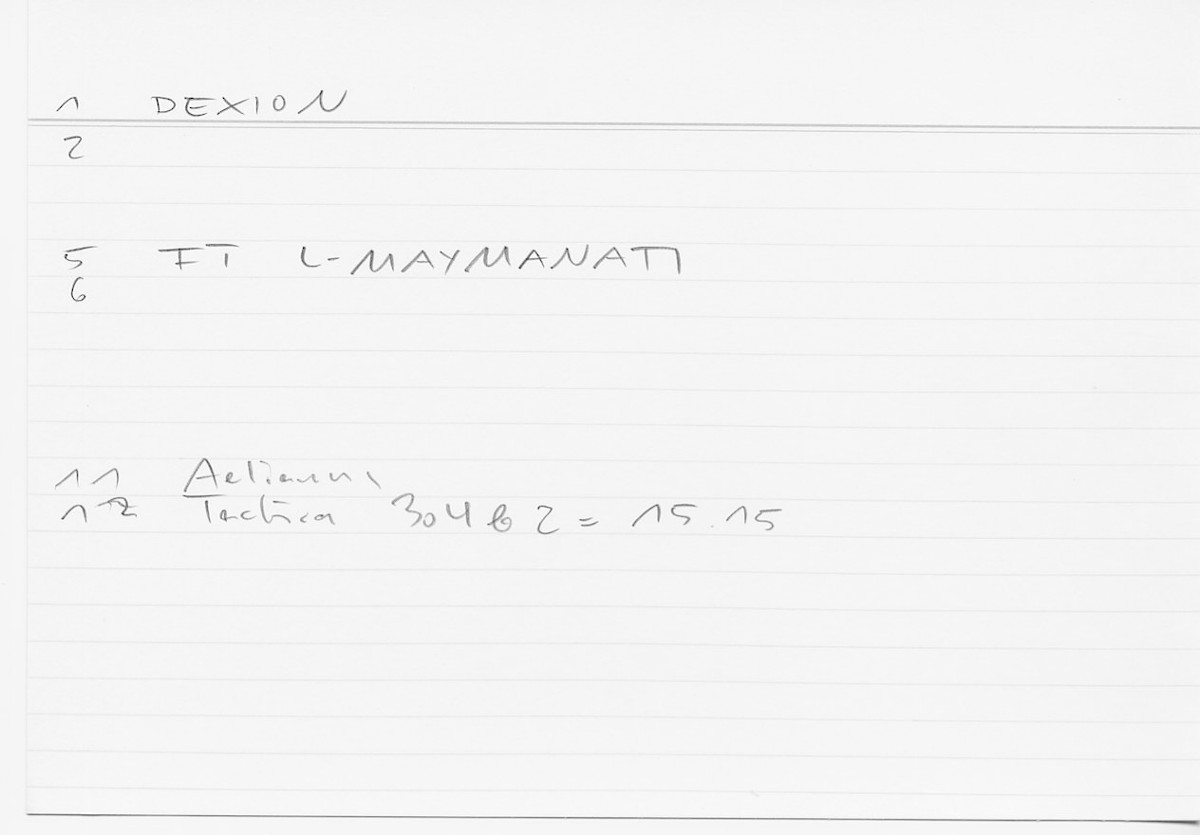 1 DEXION
2
5 FT L-MAYMANATI
6
11 Aelianus
12 Tactica 304 b 2 = 15.15